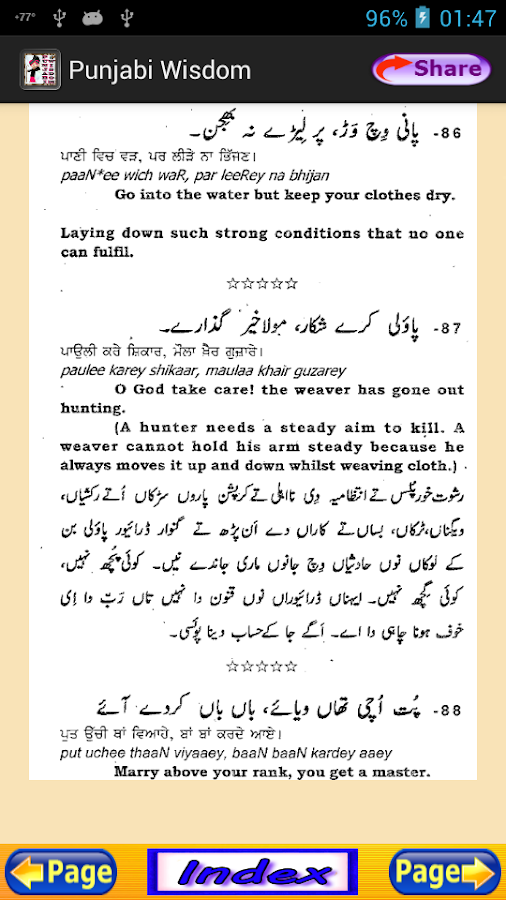 +77°
96%
01:47
Punjabi Wisdom
Share
86- پانی وِچ وَڑ، پر لِیڑے نہ بھجن۔
ਪਾਣੀ ਵਿਚ ਵੜ, ਪਰ ਲੀੜੇ ਨਾ ਭਿੱਜਣ।
paaN*ee wich waR, par leeRey na bhijan
Go into the water but keep your clothes dry.
Laying down such strong conditions that no one
can fulfil.
☆☆☆☆☆
87- پاؤلی کرے شکار، مولا خیر گذارے۔
ਪਾਉਲੀ ਕਰੇ ਸ਼ਿਕਾਰ, ਮੌਲਾ ਖ਼ੈਰ ਗੁਜ਼ਾਰੇ।
paulee karey shikaar, maulaa khair guzarey
O God take care! the weaver has gone out
hunting.
(A hunter needs a steady aim to kill. A
weaver cannot hold his arm steady because he
always moves it up and down whilst weaving cloth.)
رشوت خور پُلس تے انتظامیہ دِی نااہلی تے کرپشن پاروں سڑکاں اُتے رکشیاں،
ویگناں، ٹرکاں، بساں تے کاراں دے اَن پڑھ تے گنوار ڈرائیور پاؤلی بن
کے لوکاں نوں حادثیاں وِچ جانوں ماری جاندے نیں۔ کوئی پُچھ نہیں،
کوئی گِچھ نہیں۔ ایہناں ڈرائیوراں نوں قنون دا نہیں تاں ربّ دا اِی
خوف ہونا چاہی دا اے۔ اَگے جا کے حساب دینا پوئسی۔
☆☆☆☆☆
88- پُت اُچی تھاں ویائے، باں باں کردے آئے
ਪੁਤ ਉੱਚੀ ਥਾਂ ਵਿਆਹੇ, ਬਾਂ ਬਾਂ ਕਰਦੇ ਆਏ।
put uchee thaaN viyaaey, baaN baaN kardey aaey
Marry above your rank, you get a master.
Page
Index
Page